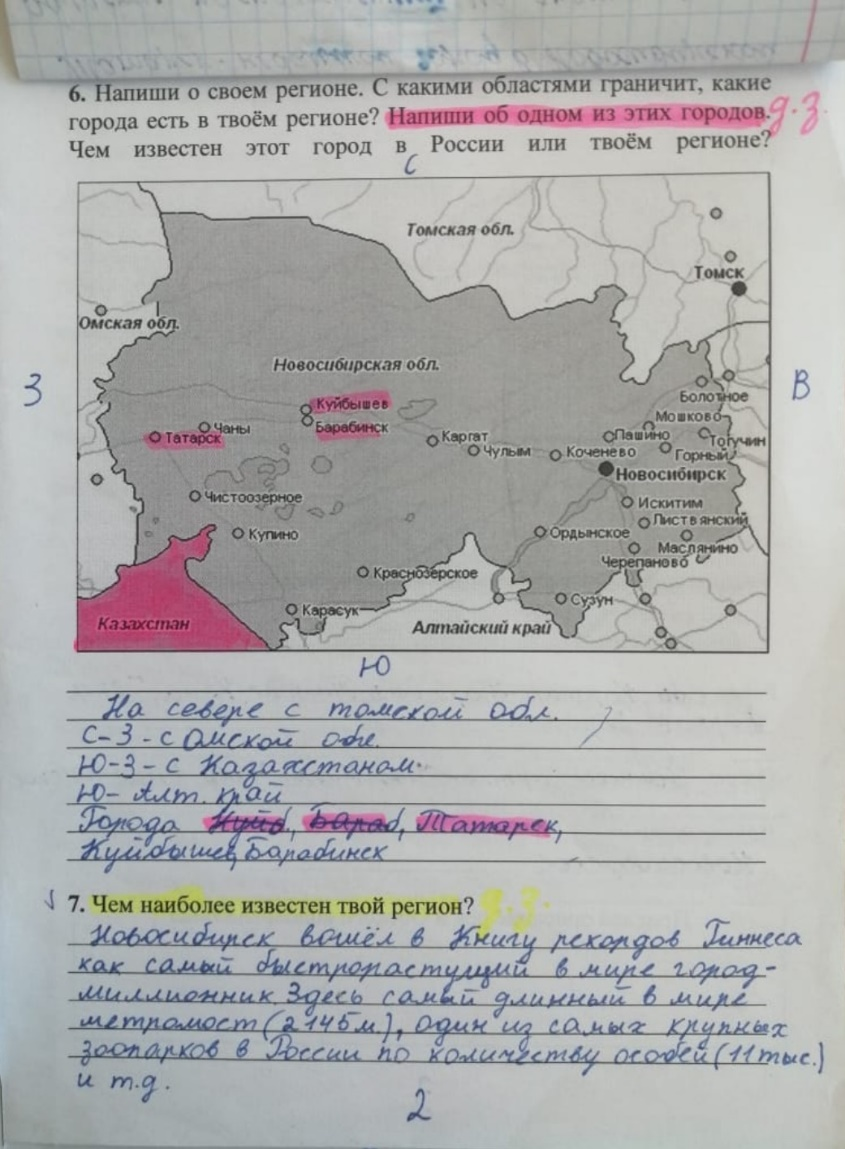 6. Напиши о своем регионе. С какими областями граничит, какие
города есть в твоём регионе? Напиши об одном из этих городов. д.з.
Чем известен этот город в России или твоём регионе?
С
Томская обл.
Томск
Омская обл.
Новосибирская обл.
З
В
Куйбышев
Болотное
Барабинск
Мошково
Чаны
Татарск
Каргат
Пашино
Тогучин
Чулым
Коченево
Горный
Новосибирск
Чистоозерное
Искитим
Листвянский
Купино
Ордынское
Маслянино
Черепаново
Краснозерское
Карасук
Сузун
Казахстан
Алтайский край
Ю
На севере с томской обл.
С-З - с Омской обл.
Ю-З - с Казахстаном.
Ю - Алт. край
Города Куйб, Бараб, Татарск,
Куйбышев, Барабинск
7. Чем наиболее известен твой регион? д.з.
Новосибирск вошёл в Книгу рекордов Гиннеса
как самый быстрорастущий в мире город-
миллионник. Здесь самый длинный в мире
метромост (2145м), один из самых крупных
зоопарков в России по количеству особей (11 тыс.)
и т.д.
2